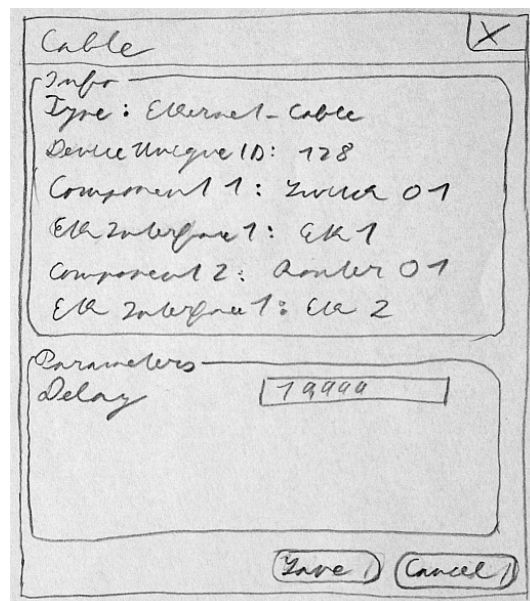 Cable X
Info
Type: Ethernet-Cable
Device Unique ID: 128
Component 1: Switch 01
Eth Interface 1: Eth 1
Component 2: Router 01
Eth Interface 1: Eth 2
Parameters
Delay
Save Cancel